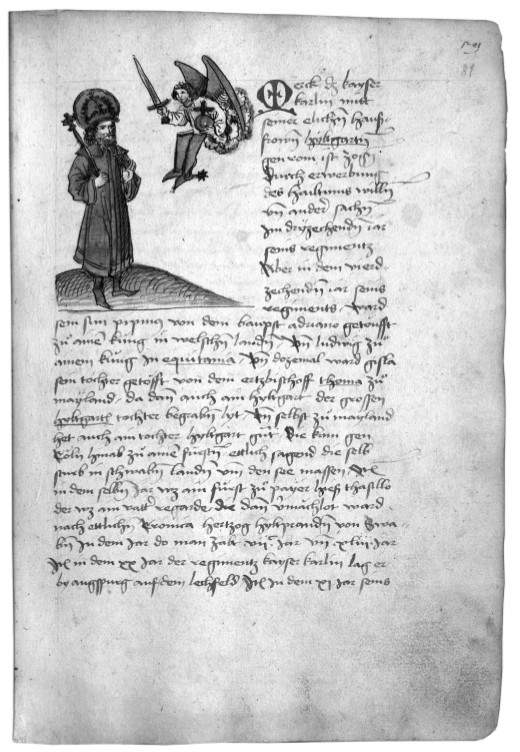 81
Merck dz kayser
karlin mitt
seiner elichen hauß
frowen hyltgarten
gen rom ist zog
durch erwerbung
des hailtums willn
vnd ander sachen
Im dryzechenden iar
seins regimentz
Aber in dem vierd
zechenden iar seins
regiments ward
sein sun pipinus von dem baupst adriano getoufft
zů ainem kúng in welschen landen vnd ludwig zů
ainem kúng in equitania vnd dozemal ward gisla
sein tochter getöfft von dem ertzbischoff thoma zů
mayland da dann auch ain hyltgart der grossen
hyltgart tochter begraben lyt vnd selbst zů mayland
het auch ain tochter hyltgart die kam gen
Cöln hinab zů ainem fúrsten ettlich sagend die selb
sturb in schwaben landen von den see massen Itl
in dem selben Jar wz ain fúrst zů payer hyeß thasillo
der wz am ratt die dann vmachlot ward
nach ettlichen Cronica hertzog hyltprandin von Swa
ben In dem Jar do man zalt vii c Jar vnd xliii Jar
Itl in dem xx Jar der regimentz kayser karlin lag er
by augspurg auf dem lechfeld Itl In dem xi Jar seins